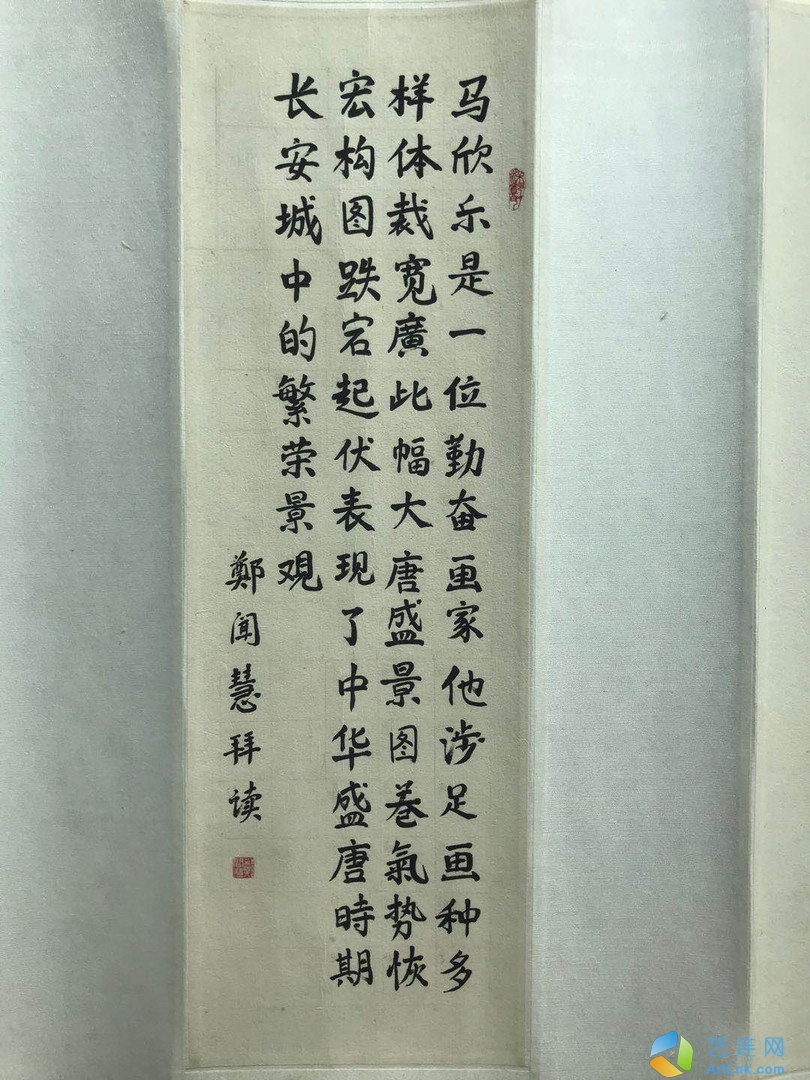 马欣乐是一位勤奋画家他涉足画种多
样体裁宽廣此幅大唐盛景图卷氣势恢
宏构图跌宕起伏表现了中华盛唐時期
长安城中的繁荣景观
鄭闻慧拜读
艺连网